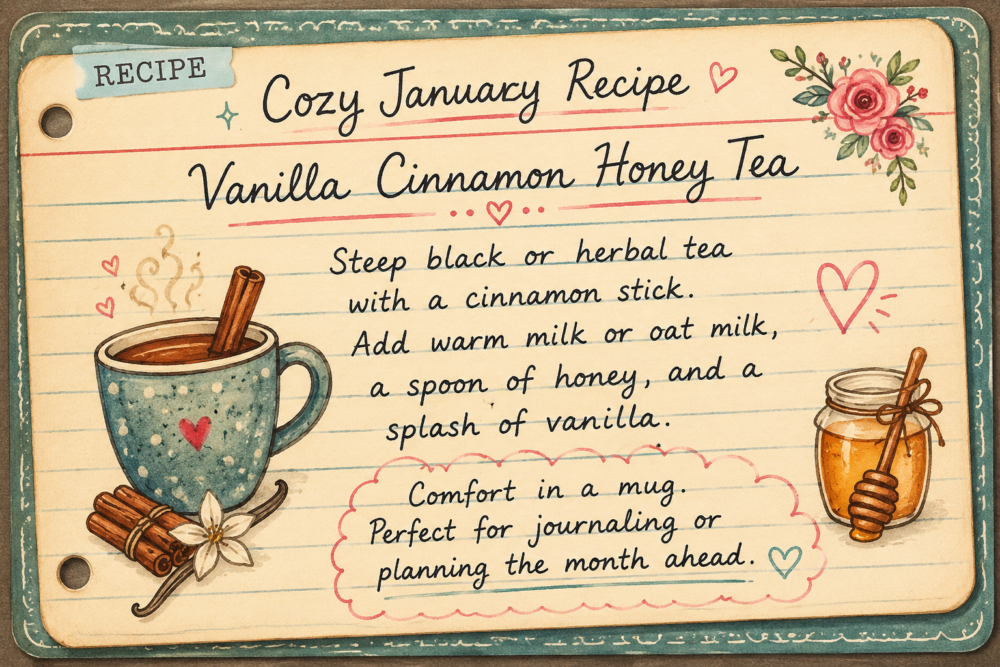 RECIPE
Cozy January Recipe
Vanilla Cinnamon Honey Tea
Steep black or herbal tea
with a cinnamon stick.
Add warm milk or oat milk,
a spoon of honey, and a
splash of vanilla.
Comfort in a mug.
Perfect for journaling or
planning the month ahead.